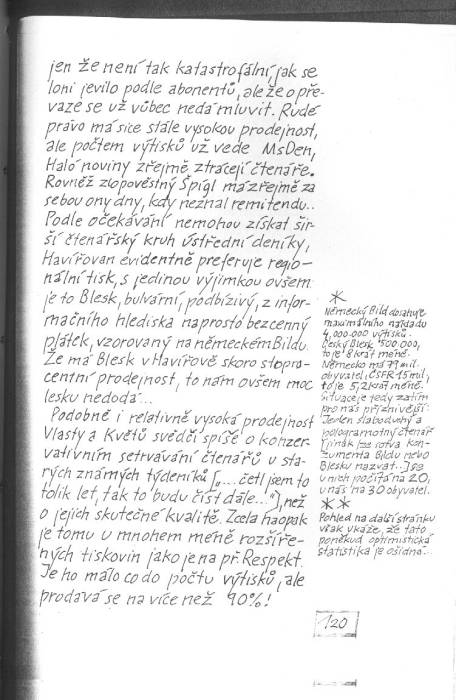 jen že není tak katastrofální, jak se
loni jevilo podle abonentů, ale že o pře-
vaze se už vůbec nedá mluvit. Rudé
právo má sice stále vysokou prodejnost,
ale počtem výtisků už vede MsDen,
Haló noviny zřejmě ztrácejí čtenáře.
Rovněž zlopověstný Špígl má zřejmě za
sebou ony dny, kdy neznal remitendu..
Podle očekávání nemohou získat šir-
ší čtenářský kruh ústřední deníky,
Havířovan evidentně preferuje regio-
nální tisk, s jedinou výjimkou ovšem:
je to Blesk, bulvární, podbízivý, z infor-
mačního hlediska naprosto bezcenný
plátek, vzorovaný na německém Bildu.
Že má Blesk v Havířově skoro stopro-
centní prodejnost, to nám ovšem moc
lesku nedodá...
Podobně i relativně vysoká prodejnost
Vlasty a Květů svědčí spíše o konzer-
vativním setrvávání čtenářů u sta-
rých známých týdeníků („... četl jsem to
tolik let, tak to budu číst dále..."), než
o jejich skutečné kvalitě. Zcela naopak
je tomu u mnohem méně rozšíře-
ných tiskovin jako je na př. Respekt.
Je ho málo co do počtu výtisků, ale
prodává se na více než 90%!
*
Německý Bild dosahuje
maximálního nákladu
4,000.000 výtisků.
Český Blesk 500.000,
to je 8 krát méně.
Německo má 79 mil.
obyvatel, ČSFR 15 mil,
to je 5,2 krát méně.
Situace je tedy zatím
pro nás příznivější.
Jeden slaboduchý a
pologramotný čtenář
(jinak lze sotva kon-
zumenta Bildu nebo
Blesku nazvat..) se
u nich počítá na 20,
u nás na 30 obyvatel.
* *
Pohled na další stránku
však ukáže, že tato
poněkud optimistická
statistika je ošidná...
120